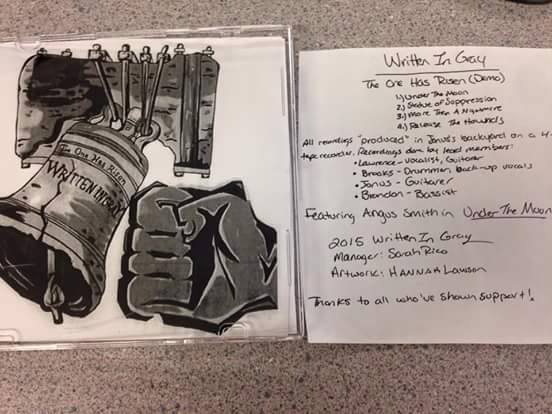 The One Has Risen
WRITTEN IN GRAY
Written In Gray
The One Has Risen (Demo)
1) Under The Moon
2) Statue of Suppression
3) More Then A Nightmare
4) Release The Hounds
All recordings "produced" in Janus's backyard on a 4-
tape recorder. Recordings done by lead members:
• Lawrence - Vocalist, Guitarer
• Brooks - Drummer, back-up vocals
• Janus - Guitarer
• Brendon - Bassist
Featuring Angus Smith in Under The Moon
2015 Written In Gray
Manager: Sarah Rico
Artwork: HANNAH Lawson
Thanks to all who've shown support!